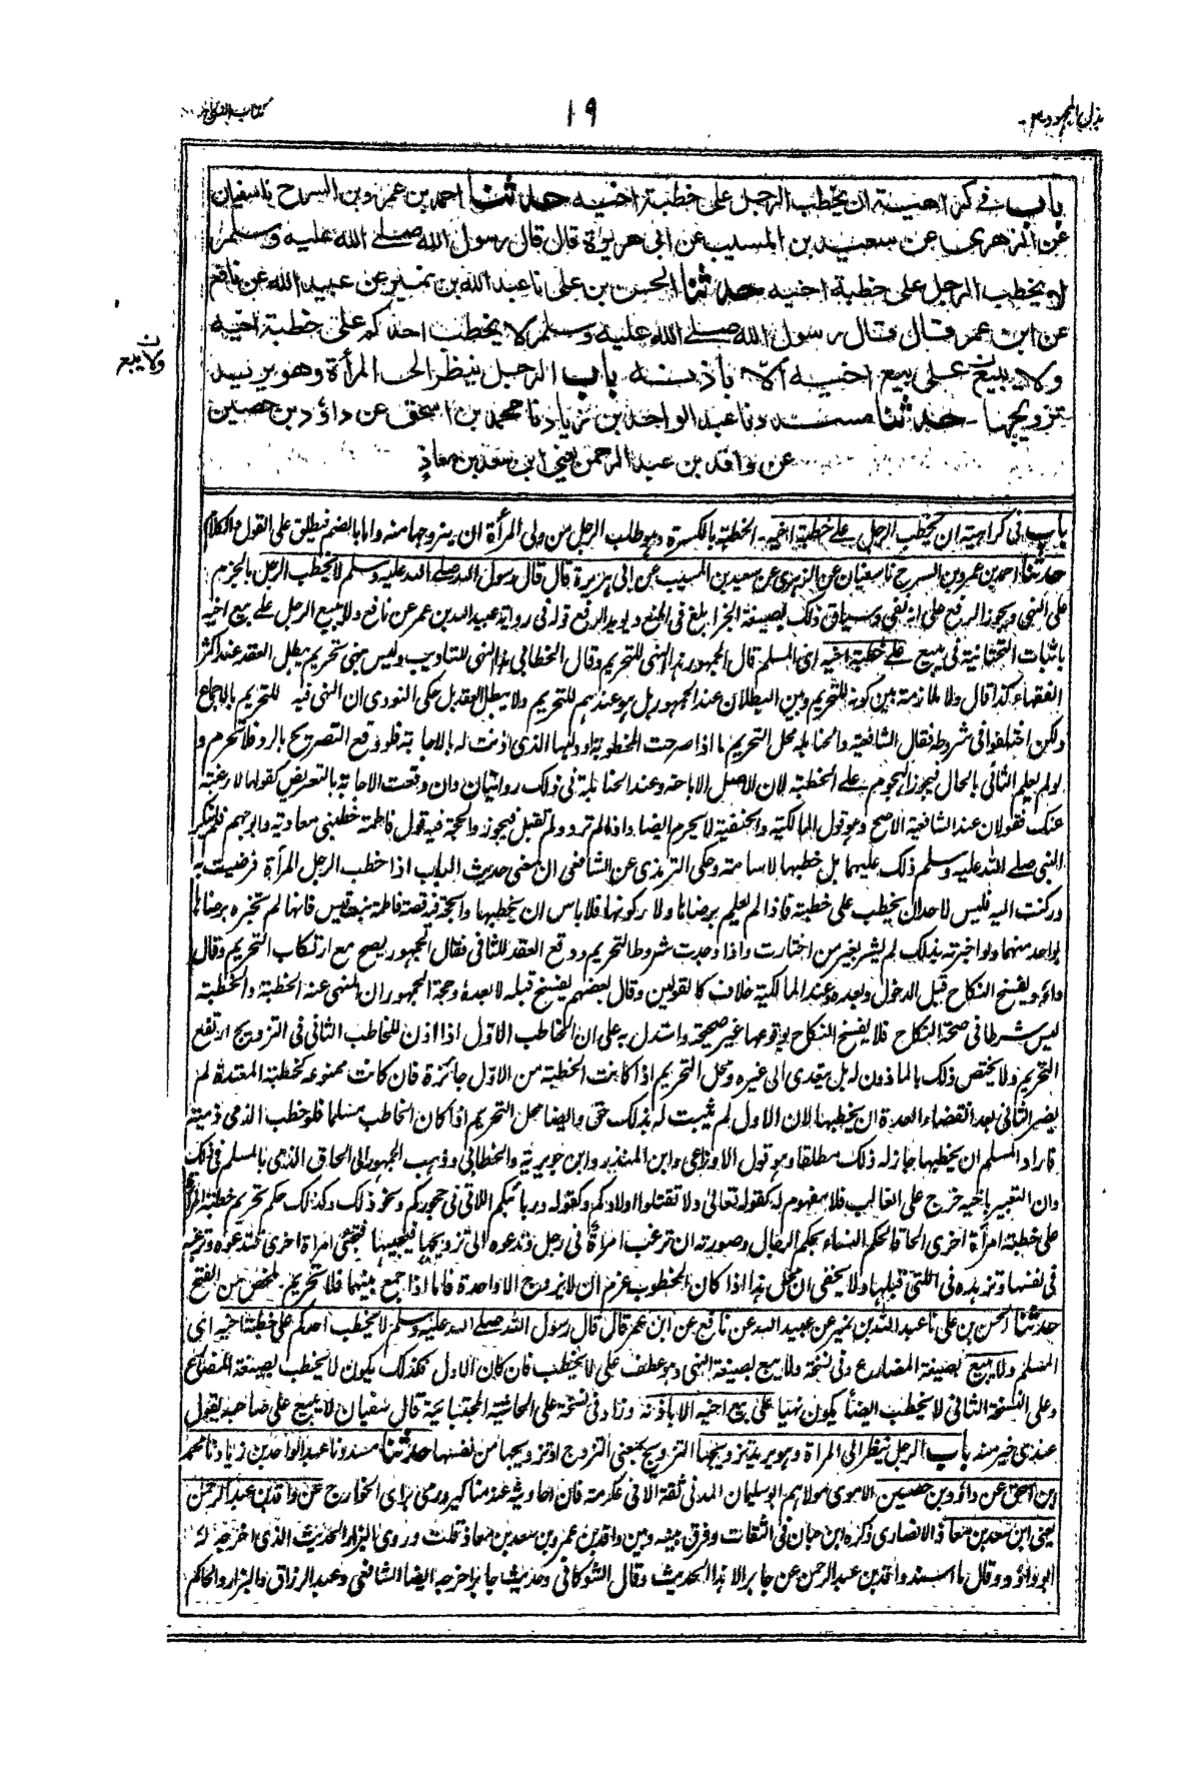 بذل المجهود ٣-
١٩
كتاب النكاح
باب في كراهية ان يخطب الرجل على خطبة اخيه حدثنا احمد بن عمرو بن السرح نا سفيان
عن الزهري عن سعيد بن المسيب عن ابي هريرة قال قال رسول الله صلى الله عليه وسلم
لا يخطب الرجل على خطبة اخيه حدثنا الحسن بن علي نا عبد الله بن نمير عن عبيد الله عن نافع
عن ابن عمر قال قال رسول الله صلى الله عليه وسلم لا يخطب احدكم على خطبة اخيه
ولا يبيع على بيع اخيه الا باذنه باب الرجل ينظر الى المرأة وهو يريد
تزويجها - حدثنا مسدد نا عبد الواحد بن زياد نا محمد بن اسحق عن داؤد بن حصين
عن واقد بن عبد الرحمن يعني ابن سعد بن معاذ
ن
ولا يبع
باب في كراهية ان يخطب الرجل على خطبة اخيه - الخطبة بالكسرة وهو طلب الرجل من ولي المرأة ان يزوجها منه واما بالضم فيطلق على القول والكلام
حدثنا احمد بن عمرو بن السرح نا سفيان عن الزهري عن سعيد بن المسيب عن ابي هريرة قال قال رسول الله صلى الله عليه وسلم لا يخطب الرجل بالجزم
على النهي ويجوز الرفع على انه نفي وسياق ذلك بصيغة الخبر ابلغ في المنع ويؤيد الرفع قوله في رواية عبيد الله بن عمر عن نافع ولا يبيع الرجل على بيع اخيه
باثبات التحتانية في يبيع على خطبة اخيه اي المسلم قال الجمهور هذا النهي للتحريم وقال الخطابي هذا النهي للتاديب وليس بنهي تحريم يبطل العقد عند اكثر
الفقهاء كذا قال ولا ملازمة بين كونه للتحريم وبين البطلان عند الجمهور بل هو عندهم للتحريم ولا يبطل العقد بل حكى النووي ان النهي فيه للتحريم بالاجماع
ولكن اختلفوا في شروطه فقال الشافعية والحنابلة محل التحريم ما اذا صرحت المخطوبة او وليها الذي اذنت له بالاجابة فلو وقع التصريح بالرد فلا تحريم و
لو لم يعلم الثاني بالحال فيجوز الهجوم على الخطبة لان الاصل الاباحة وعند الحنابلة في ذلك روايتان وان وقعت الاجابة بالتعريض كقولها لا رغبة
عنك فقولان عند الشافعية الاصح وهو قول المالكية والحنفية لا يحرم ايضا واذا لم ترد ولم تقبل فيجوز والحجة فيه قول فاطمة خطبني معاوية وابو جهم فلم ينكر
النبي صلى الله عليه وسلم ذلك عليهما بل خطبها لاسامة وحكى الترمذي عن الشافعي ان معنى حديث الباب اذا خطب الرجل المرأة فرضيت به
وركنت اليه فليس لاحد ان يخطب على خطبته فاذا لم يعلم برضاها ولا ركونها فلا باس ان يخطبها والحجة فيه قصة فاطمة بنت قيس فانها لم تخبره برضاها
بواحد منهما ولو اخبرته بذلك لم يشر بغير من اختارت واذا وجدت شروط التحريم ووقع العقد للثاني فقال الجمهور يصح مع ارتكاب التحريم وقال
داؤد يفسخ النكاح قبل الدخول وبعده وعند المالكية خلاف كالقولين وقال بعضهم يفسخ قبله لا بعده وحجة الجمهور ان المنهي عنه الخطبة والخطبة
ليس شرطا في صحة النكاح فلا يفسخ النكاح بوقوعها غير صحيحة واستدل به على ان الخاطب الاول اذا اذن للخاطب الثاني في التزويج ارتفع
التحريم ولا يختص ذلك بالماذون له بل يتعدى الى غيره ومحل التحريم اذا كانت الخطبة من الاول جائزة فان كانت ممنوعة كخطبة المعتدة لم
يضر الثاني بعد انقضاء العدة ان يخطبها لان الاول لم يثبت له بذلك حق وايضا محل التحريم اذا كان الخاطب مسلما فلو خطب الذمي ذمية
فاراد المسلم ان يخطبها جاز له ذلك مطلقا وهو قول الاوزاعي وابن المنذر وابن جويرية والخطابي وذهب الجمهور الى الحاق الذمي بالمسلم في ذلك
وان التعبير باخيه خرج على الغالب فلا مفهوم له كقوله تعالى ولا تقتلوا اولادكم وكقوله وربائبكم اللاتي في حجوركم ونحو ذلك وكذلك حكم تحريم خطبة المرأة
على خطبة امرأة اخرى الحاقا لحكم النساء بحكم الرجال وصورته ان ترغب امرأة في رجل وتدعوه الى تزويجها فيجيبها فتجئ امراة اخرى فتدعوه وترغبه
في نفسها وتزهده في اللتي قبلها ولا يخفى ان محل هذا اذا كان المخطوب عزم ان لا يتزوج الا واحدة فاما اذا جمع بينهما فلا تحريم - ملخص من الفتح
حدثنا الحسن بن علي نا عبد الله بن نمير عن عبيد الله عن نافع عن ابن عمر قال قال رسول الله صلى الله عليه وسلم لا يخطب احدكم على خطبة اخيه اي
المسلم ولا يبيع بصيغة المضارع وفي نسخة ولا يبع بصيغة النهي وهو عطف على لا يخطب فان كان الاول فكذلك يكون لا يخطب بصيغة المضارع
وعلى النسخة الثاني لا يخطب ايضا يكون نهيا على بيع اخيه الا باذنه وزاد في نسخة على الحاشية المجتبائية قال سفيان لا يبيع على صاحبه يقول
عندي خير منه باب الرجل ينظر الى المراة وهو يريد تزويجها التزويج بمعنى التزوج او تزويجها من نفسها حدثنا مسدد نا عبد الواحد بن زياد نا محمد
ابن اسحق عن داؤد بن حصين الاموي مولاهم ابو سليمان المدني ثقة الا في عكرمة فان احاديثه عنه مناكير ورمي براى الخوارج عن واقد بن عبد الرحمن
يعني ابن سعد بن معاذ الانصاري ذكره ابن حبان في الثقات وفرق بينه وبين واقد بن عمرو بن سعد بن معاذ قلت وروى البزار الحديث الذي اخرجه له
ابو داؤد وقال ما اسند واقد بن عبد الرحمن عن جابر الا هذا الحديث وقال الشوكاني وحديث جابر اخرجه ايضا الشافعي وعبد الرزاق والبزار والحاكم